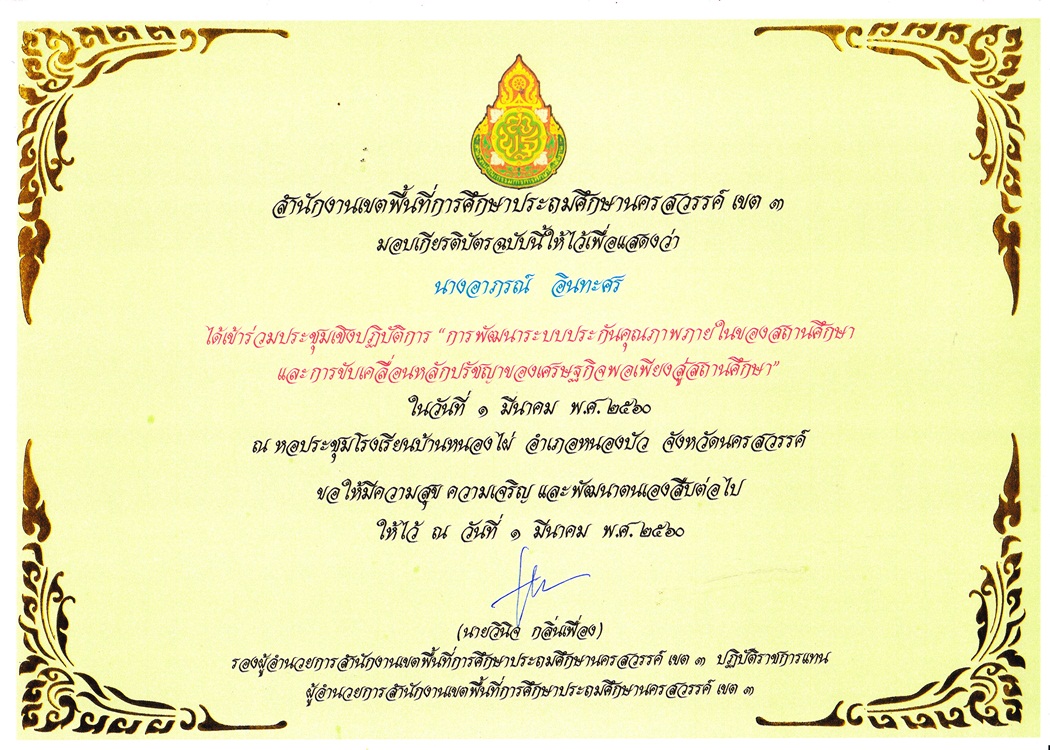 สพฐ
สำนักงานเขตพื้นที่การศึกษาประถมศึกษานครสวรรค์ เขต ๓
มอบเกียรติบัตรฉบับนี้ให้ไว้เพื่อแสดงว่า
นางอาภรณ์ อินทะศร
ได้เข้าร่วมประชุมเชิงปฏิบัติการ “การพัฒนาระบบประกันคุณภาพภายในของสถานศึกษา
และการขับเคลื่อนหลักปรัชญาของเศรษฐกิจพอเพียงสู่สถานศึกษา”
ในวันที่ ๑ มีนาคม พ.ศ. ๒๕๖๐
ณ หอประชุมโรงเรียนบ้านหนองไผ่ อำเภอหนองบัว จังหวัดนครสวรรค์
ขอให้มีความสุข ความเจริญ และพัฒนาตนเองสืบต่อไป
ให้ไว้ ณ วันที่ ๑ มีนาคม พ.ศ. ๒๕๖๐
(นายวินิจ กลิ่นเฟื่อง)
รองผู้อำนวยการสำนักงานเขตพื้นที่การศึกษาประถมศึกษานครสวรรค์ เขต ๓ ปฏิบัติราชการแทน
ผู้อำนวยการสำนักงานเขตพื้นที่การศึกษาประถมศึกษานครสวรรค์ เขต ๓